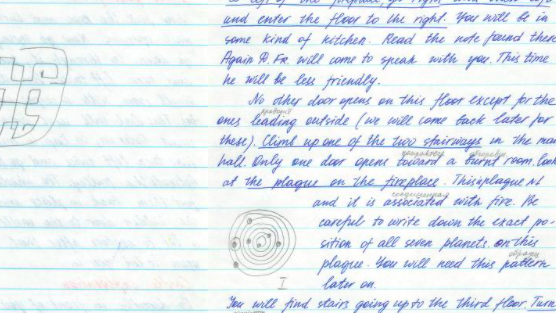 and enter the floor to the right. You will be in
some kind of kitchen. Read the note found there
Again A. Fr. will come to speak with you. This time
he will be less friendly.
No other door opens on this floor except for the
ones leading outside (we will come back later for
these). Climb up one of the two stairways in the main
hall. Only one door opens toward a burnt room. Look
at the plaque on the fireplace. This is plaque №1
and it is associated with fire. Be
careful to write down the exact po-
sition of all seven planets on this
plaque. You will need this pattern
later on.
I
You will find stairs going up to the third floor. Turn